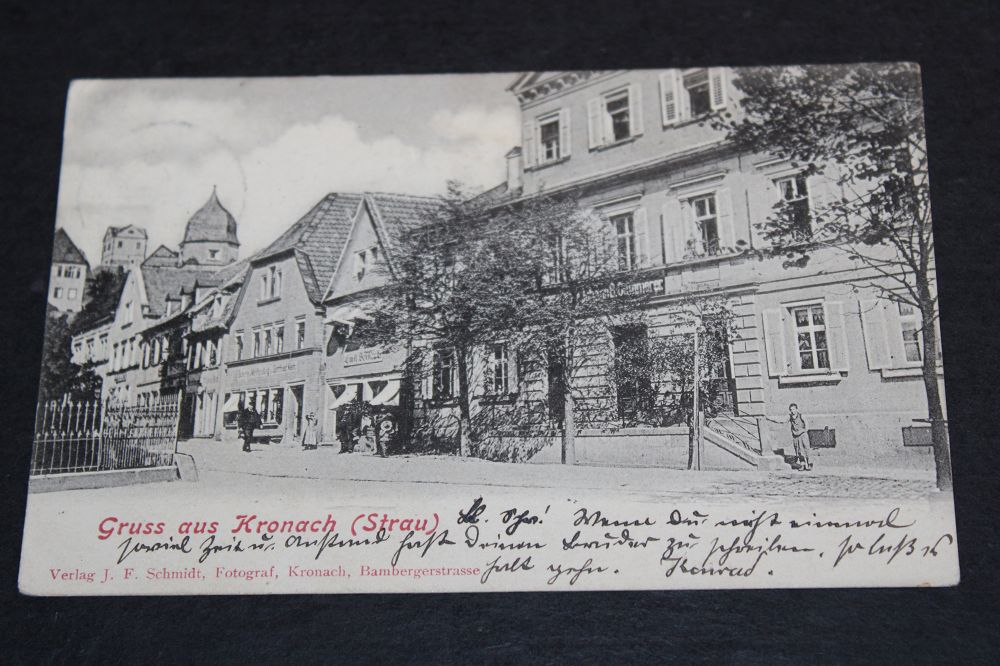 Gruss aus Kronach (Strau)
Lb. Schw! Wenn du nicht einmal
soviel Zeit u. Anstand hast deinem Bruder zu schreiben, so laß es
halt gehn. Konrad.
Verlag J. F. Schmidt, Fotograf, Kronach, Bambergerstrasse
Emil